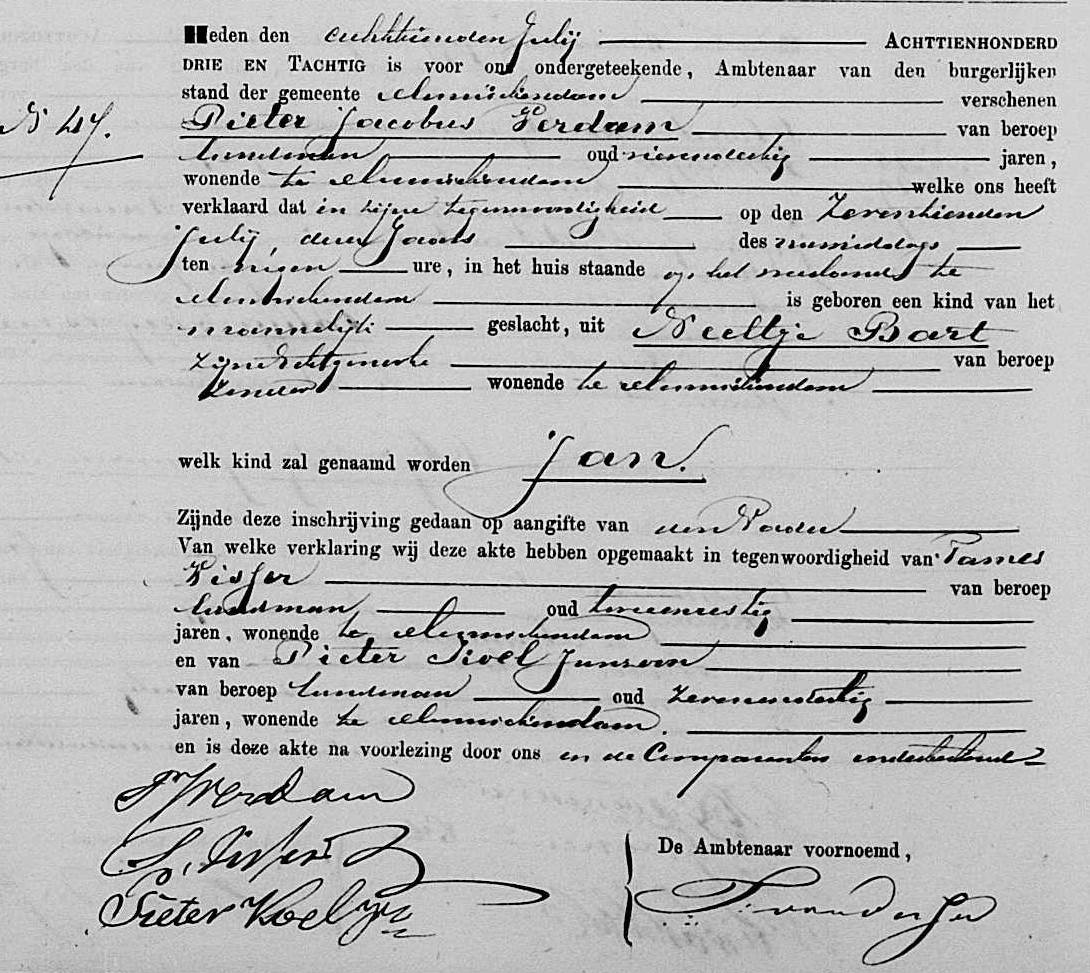 Heden den achttienden Julij ACHTTIENHONDERD
DRIE EN TACHTIG is voor ons ondergeteekende, Ambtenaar van den burgerlijken
stand der gemeente verschenen
N 47. Pieter Jacobus Verdam van beroep
landman oud jaren,
wonende te welke ons heeft
verklaard dat in zijne tegenwoordigheid op den Zeventienden
Julij dezes Jaars des namiddags
ten negen ure, in het huis staande op het te
is geboren een kind van het
mannelijk geslacht, uit Neeltje Bart
zijne Echtgenoote van beroep
zonder wonende te
welk kind zal genaamd worden Jan.
Zijnde deze inschrijving gedaan op aangifte van den Vader
Van welke verklaring wij deze akte hebben opgemaakt in tegenwoordigheid van Tames
Visser van beroep
landman oud
jaren, wonende te
en van Pieter
van beroep landman oud
jaren, wonende te
en is deze akte na voorlezing door ons en de Comparanten onderteekend
P Verdam
T. Visser
Pieter
De Ambtenaar voornoemd,